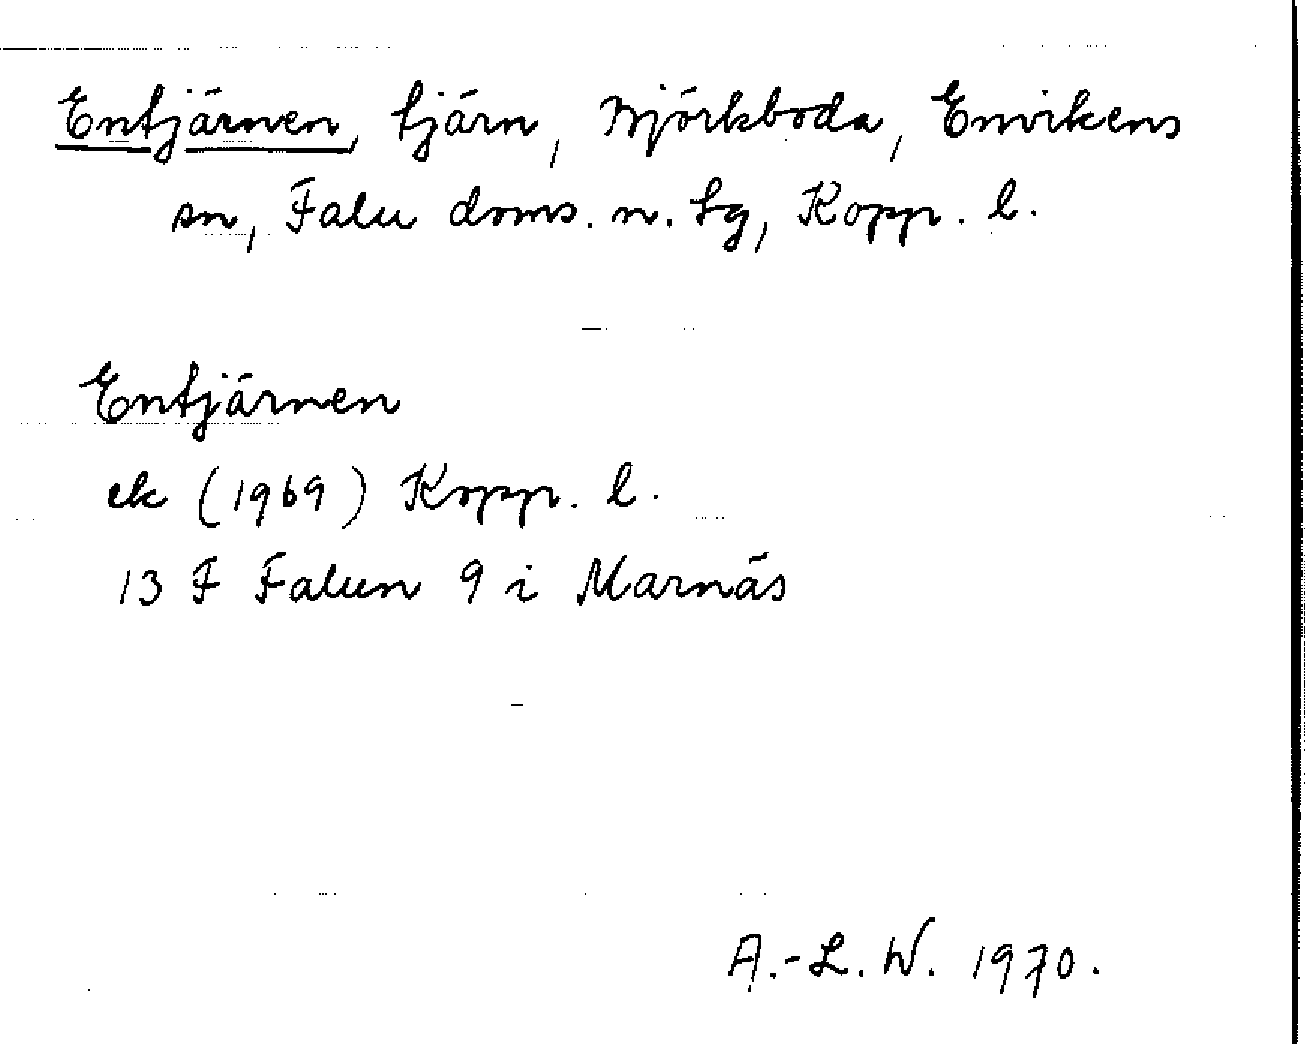 Entjärnen, tjärn, Björkboda, Envikens
sn, Falu doms. n. tg, Kopp. l.
Entjärnen
ek (1969) Kopp. l.
13 F Falun 9 i Marnäs
A.-L. W. 1970.